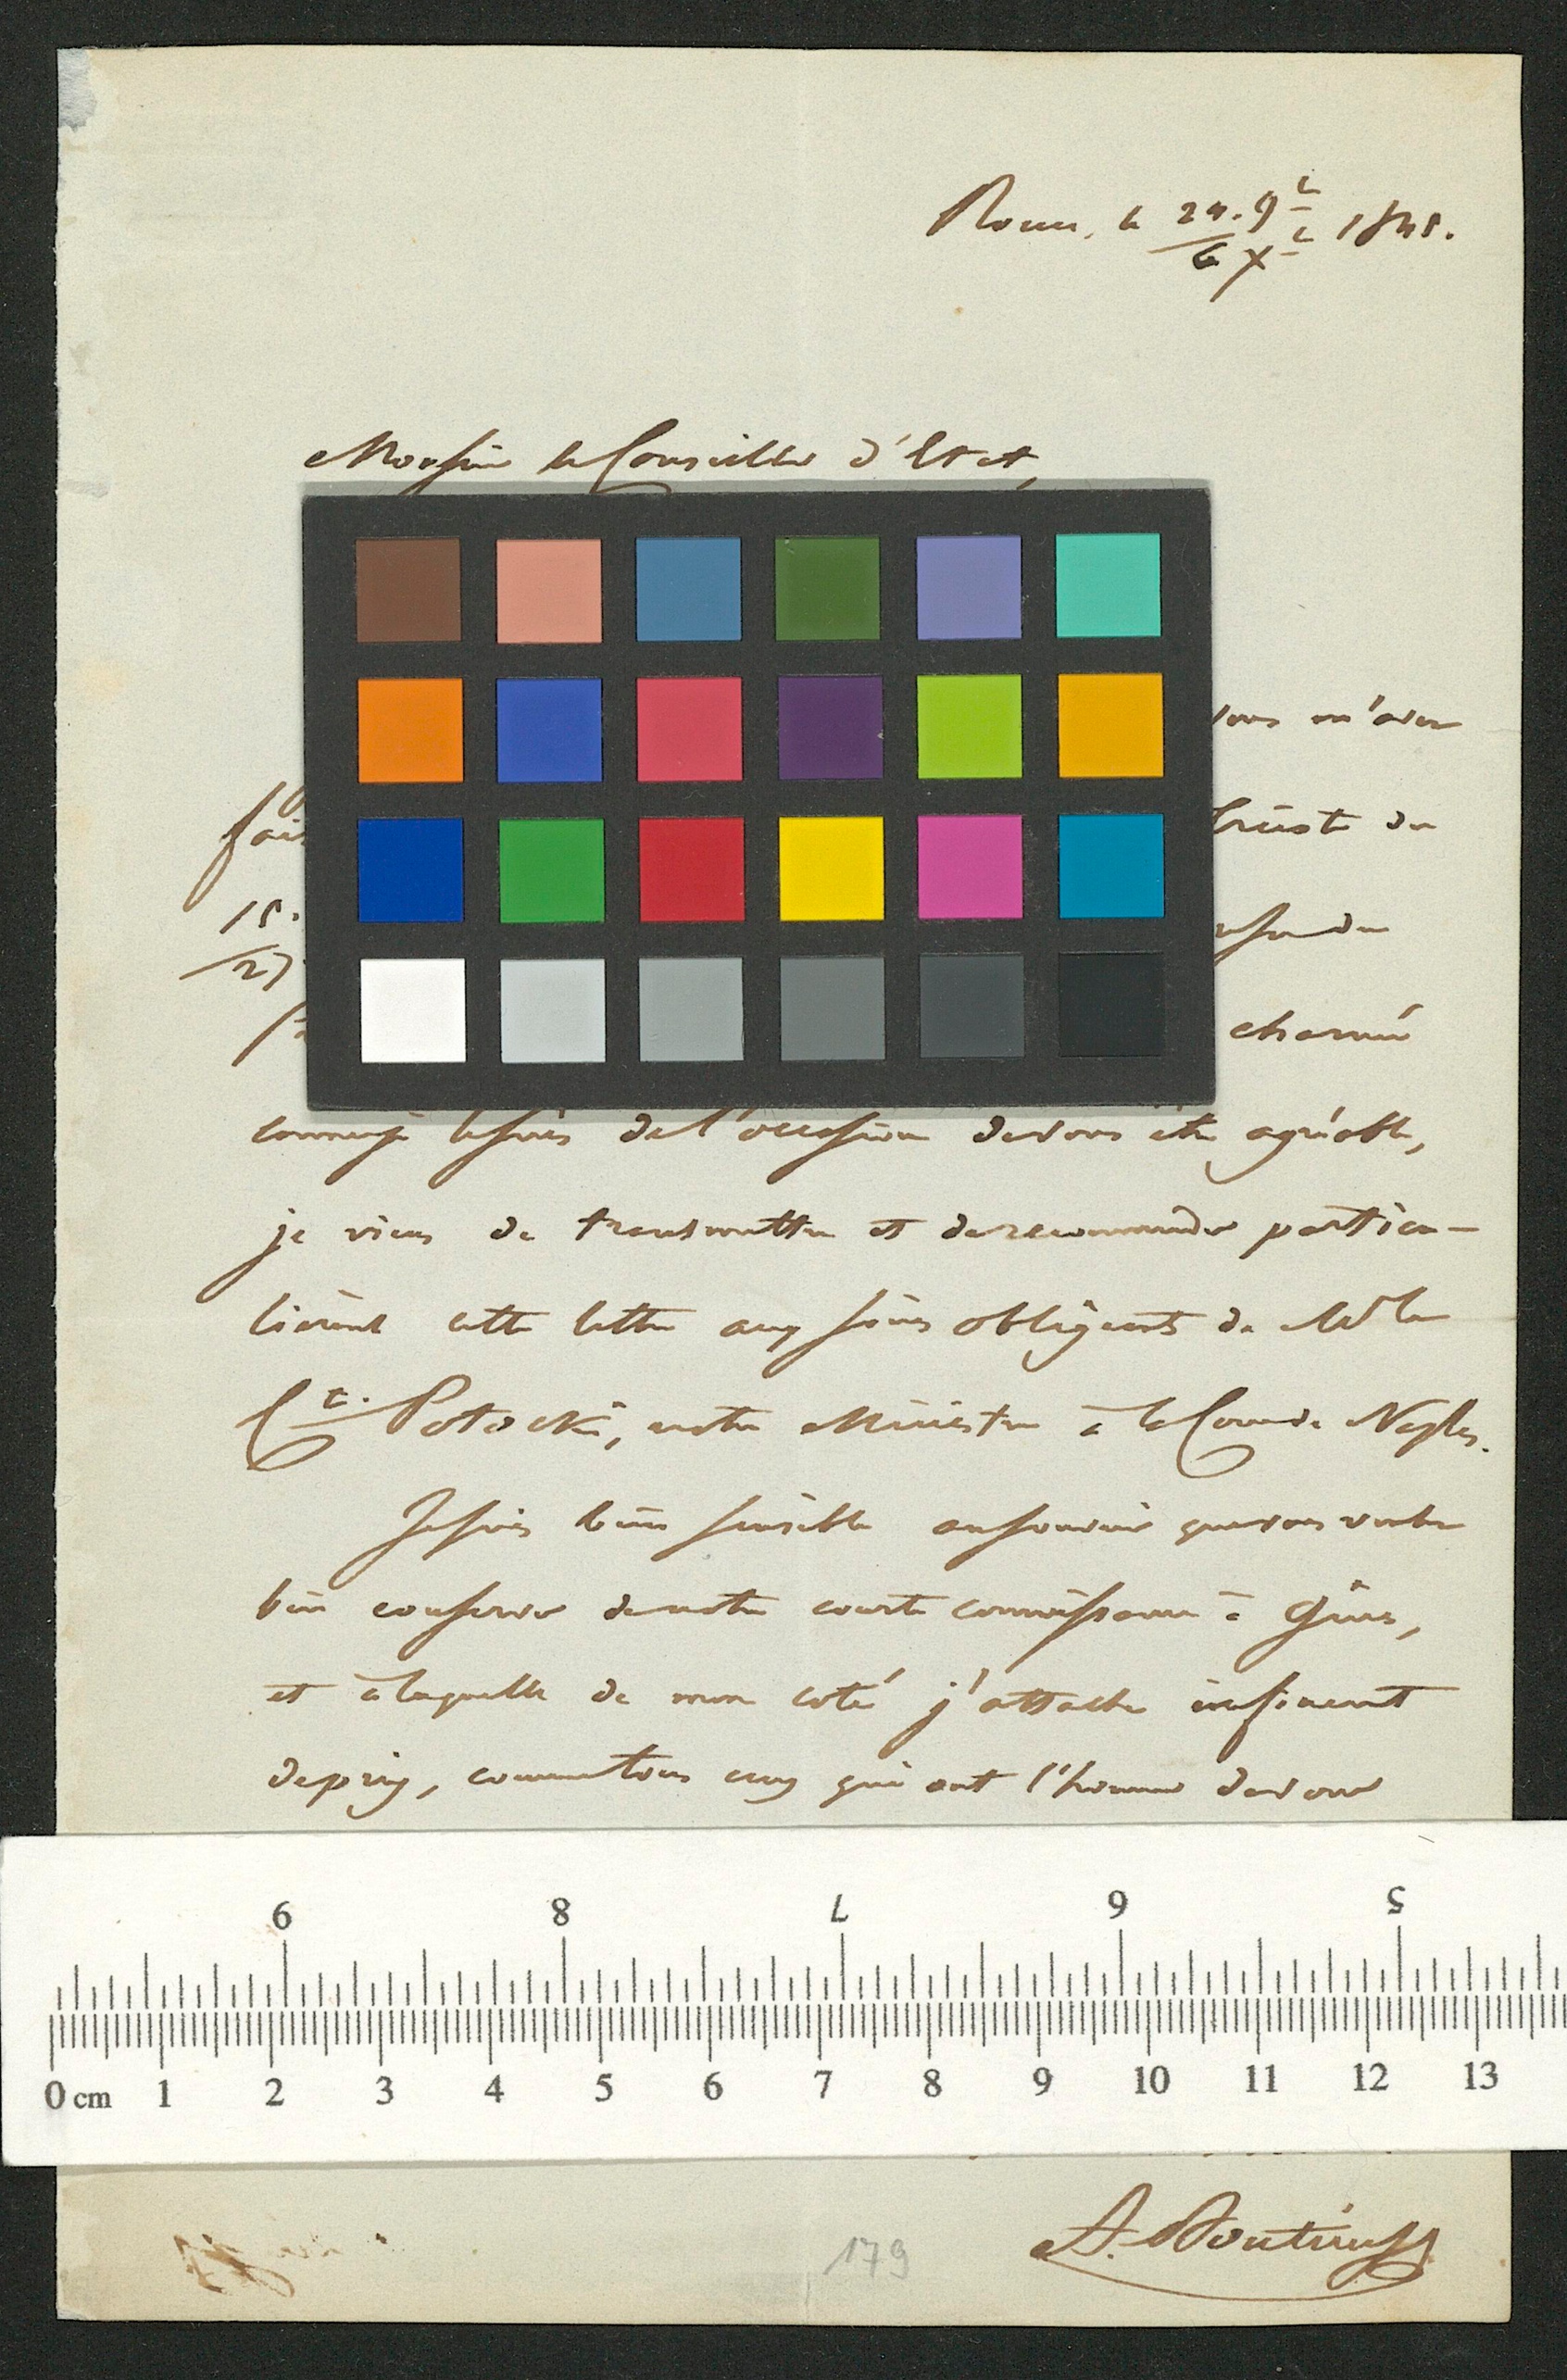 Rome, le 24. 9b 1845.
6 Xb
Monsieur le Conseiller d'Etat,
vous m'avez
fai
Trieste du
15.
27
charmé
comme je le suis de l'occasion de vous être agréable,
je viens de transmettre et de recommander particu-
lièremt cette lettre aux soins obligeants de Mr le
Cte. Potocki, notre Ministre à la Cour de Naples.
Je suis bien sensible au souvenir que vous voulez
bien conserver de notre courte connaissance à Gênes,
et à laquelle de mon coté j'attache infiniment
de prix, comme tous ceux qui ont l'honneur de vous
9 8 7 6 5
0 cm 1 2 3 4 5 6 7 8 9 10 11 12 13
179